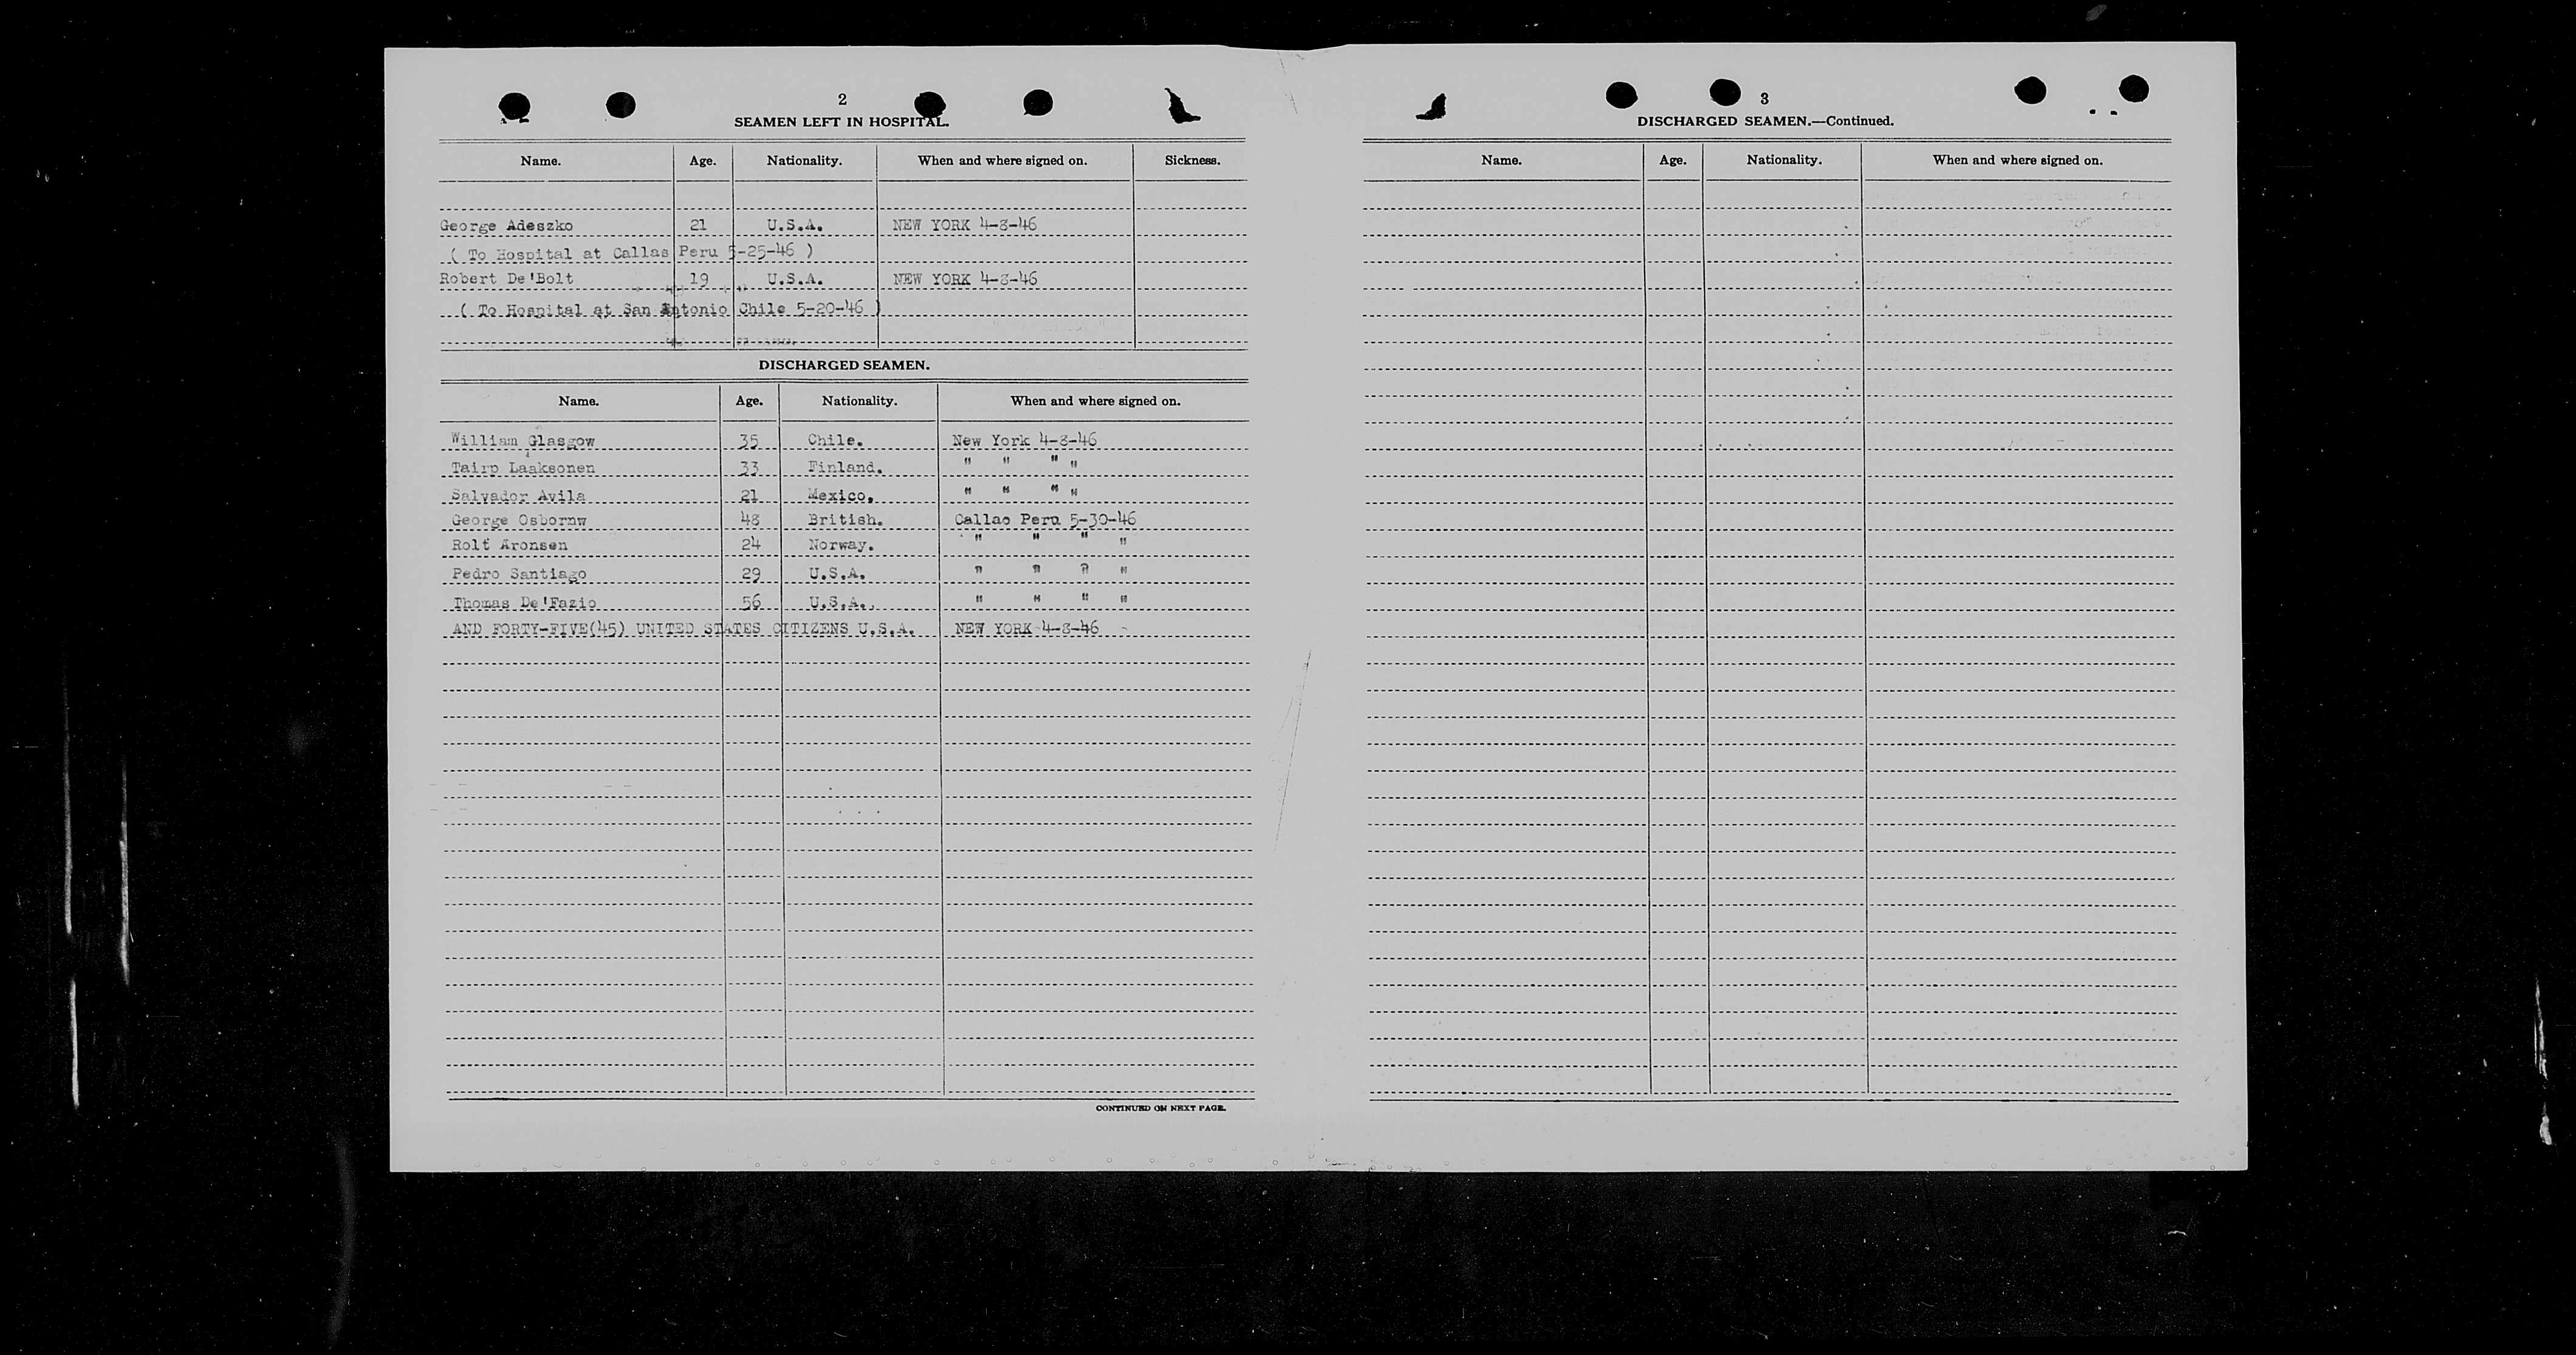 2
SEAMEN LEFT IN HOSPITAL.
Name. Age. Nationality. When and where signed on. Sickness.
George Adeszko 21 U.S.A. NEW YORK 4-8-46
( To Hospital at Callas Peru 5-25-46 )
Robert De'Bolt 19 U.S.A. NEW YORK 4-8-46
( To Hospital at San Antonio Chile 5-20-46 )
DISCHARGED SEAMEN.
Name. Age. Nationality. When and where signed on.
William Glasgow 35 Chile. New York 4-8-46
Laaksonen 33 Finland. " " " "
Salvador Avila 21 Mexico. " " " "
George Osbornw 48 British. Callao Peru 5-30-46
Rolf Aronsen 24 Norway. " " " "
Pedro Santiago 29 U.S.A. " " " "
Thomas De'Fazio 56 U.S.A. " " " "
AND FORTY-FIVE(45) UNITED STATES CITIZENS U.S.A. NEW YORK 4-8-46
CONTINUED ON NEXT PAGE.
3
DISCHARGED SEAMEN.—Continued.
Name. Age. Nationality. When and where signed on.